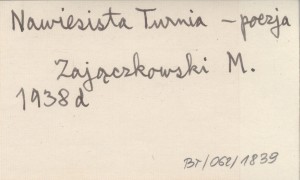 Nawiesista Turnia - poezja
Zajączkowski M.
1938 d
Br/062/1839